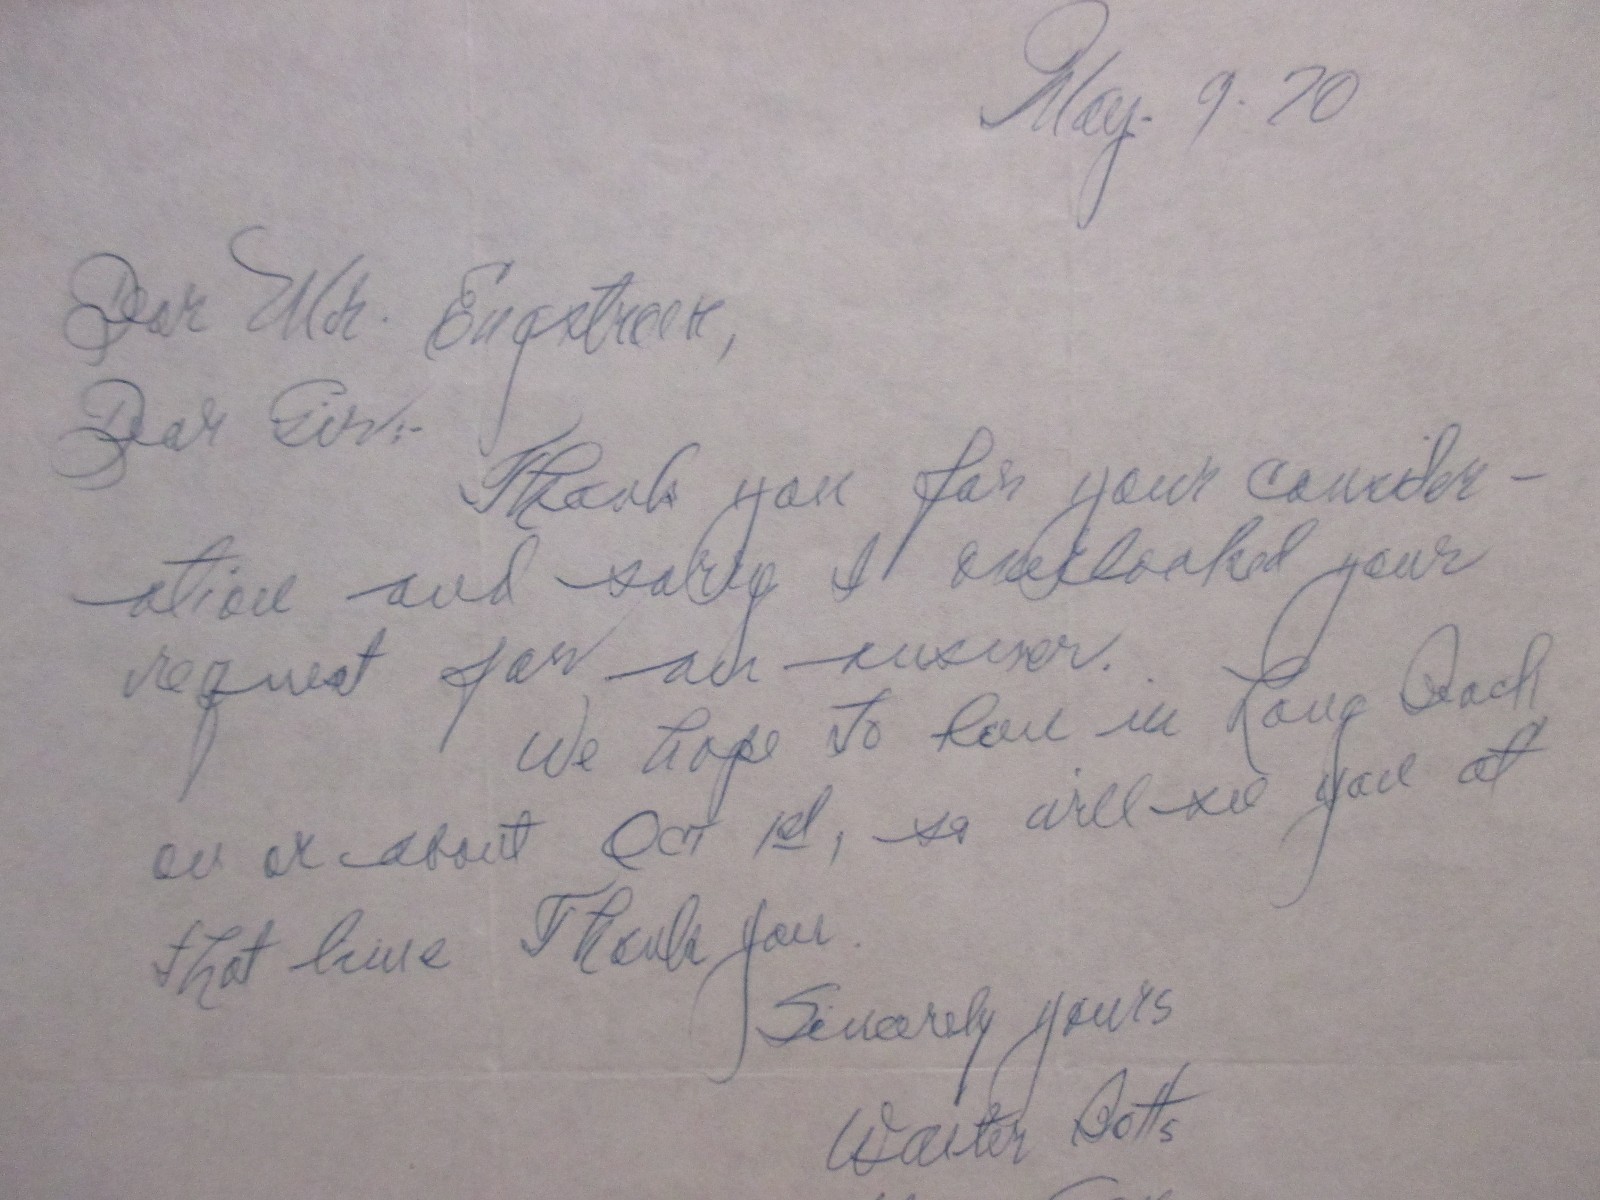 May. 9. 70
Dear Mr. Engstrom,
Dear Sir:-
Thank you for your consider-
ation and sorry I overlooked your
request for an answer.
We hope to be in Long Beach
on or about Oct 1st, so will see you at
that time Thank you.
Sincerely yours
Walter Botts